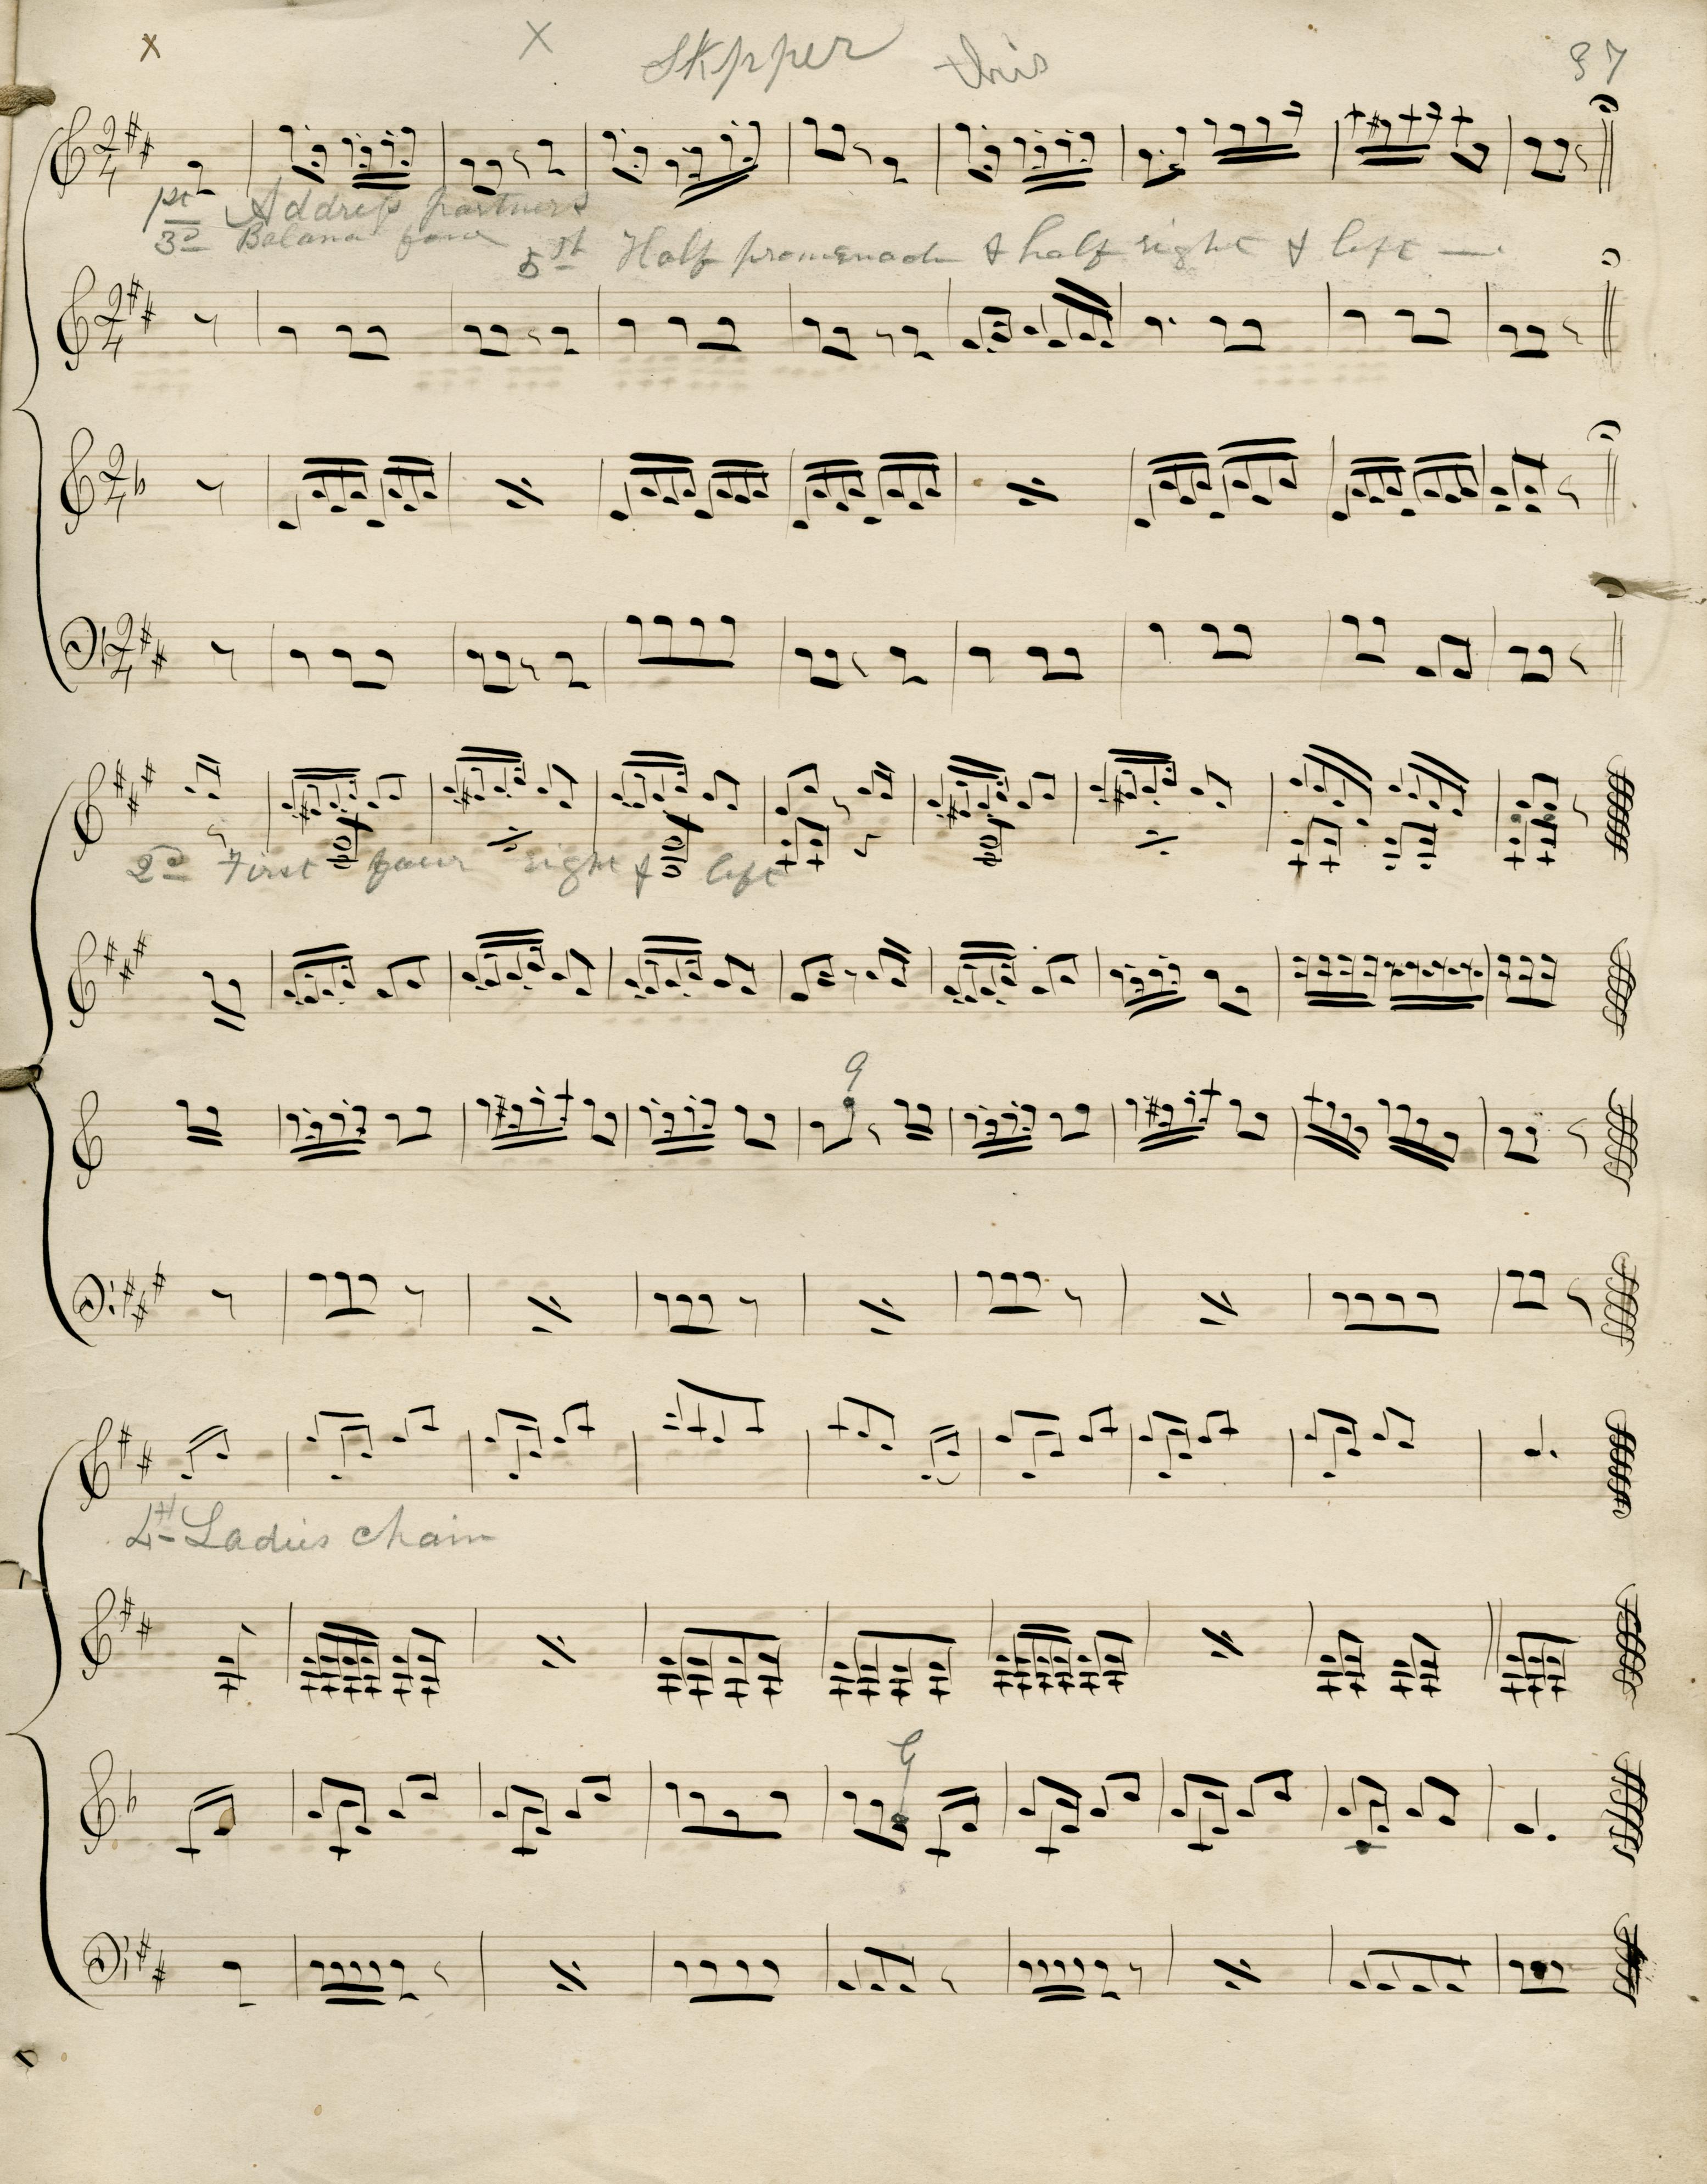 x x Skpper this 37
1st Address partners
3d Balance four 5th Half promenade & half right & left —
2d First four right & left
9
4th Ladies chain
G